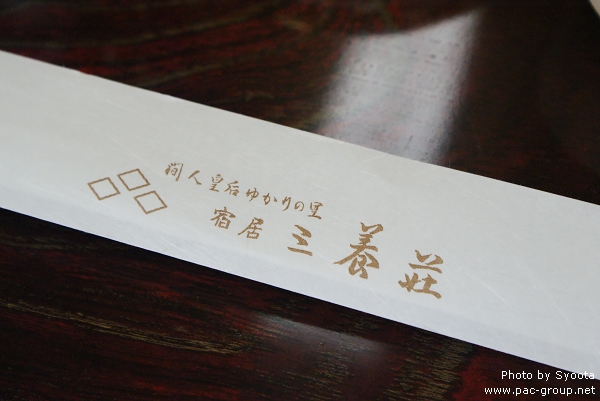 間人皇后ゆかりの里
宿居 三養荘
Photo by Syoota
www.pac-group.net